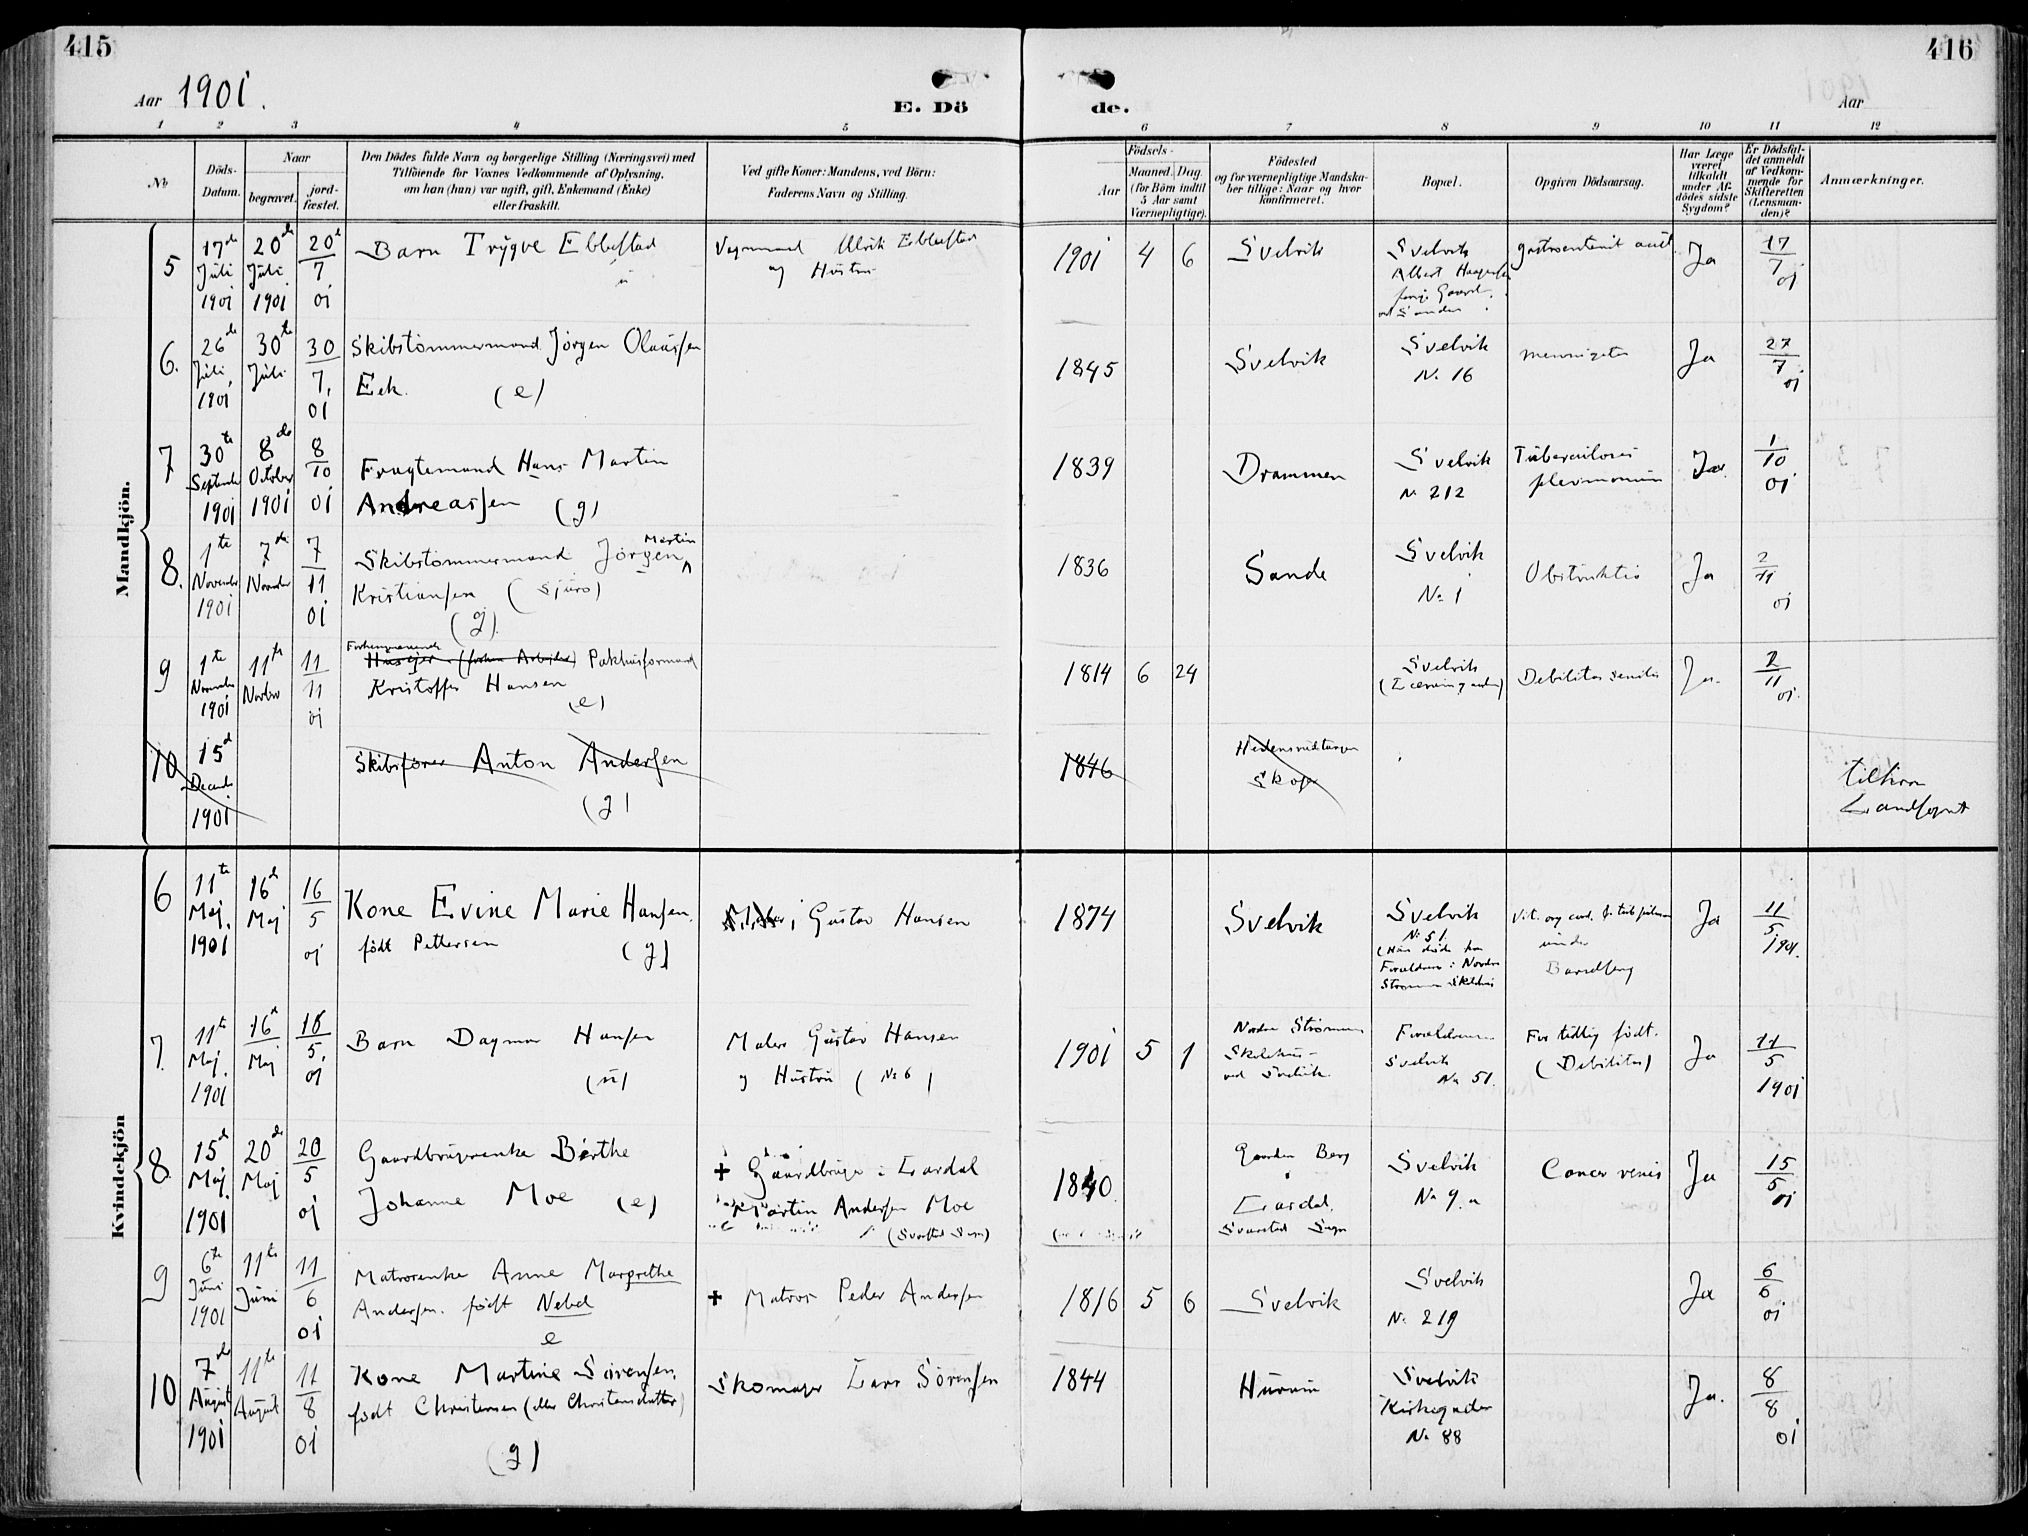 415
416
Aar 1901.
E. Dö
de.
Aar
1 2 3 4 5 6 7 8 9 10 11 12
No
Döds-
Datum.
Naar
begravet.
jord-
fæstet.
Den Dödes fulde Navn og borgerlige Stilling (Næringsvei) med
Tilföiende for Voxnes Vedkommende af Oplysning,
om han (hun) var ugift, gift, Enkemand (Enke)
eller fraskilt.
Ved gifte Koner: Mandens, ved Börn:
Faderens Navn og Stilling.
Födsels-
Aar
Maaned. Dag.
(for Börn indtil
5 Aar samt
Værnepligtige).
Födested
og for værnepligtige Mandska-
ber tillige: Naar og hvor
konfirmeret.
Bopæl.
Opgiven Dödsaarsag.
Har Læge
været
tilkaldt
under Af-
dödes sidste
Sygdom?
Er Dödsfal-
det anmeldt
af Vedkom-
mende for
Skifteretten
(Lensman-
den)?
Anmærkninger.
Mandkjön.
5
17de Juli 1901
20de Juli 1901
20/7 01
Barn Trygve Ebbestad
u
Ulrik Ebbestad
og Hustru
1901 4 6
Svelvik
Svelvik
Albert
Gaard
Ja
17/7 01
6.
26de Juli, 1901
30te Juli
30/7, 01
Skibstømmermand Jørgen Olaussen
Eek. (e)
1845
Svelvik
Svelvik
No 16
Ja
27/7 01
7
30te September 1901
8de October 1901
8/10 01
Fragtemand Hans Martin
Andreassen (g)
1839
Drammen
Svelvik
No 212
Tuberculosis
pleumonum
Ja
1/10 01
8.
1te November 1901
7de November
7/11 01
Skibstømmermand Jørgen Martin
Kristiansen (Sjuro)
(g).
1836
Sande
Svelvik
No 1
Obstruktio
Ja
2/11 01
9
1te November 1901
11te Novbr
11/11 01
Forhenværende
Huseier (forhen Arbeider) Pakhusformand
Kristoffer Hansen
(e)
1814 6 24
Svelvik
Debilitas senilis
Ja.
2/11 01.
10
15de December 1901
Skibsfører Anton Andersen
(g)
1846
Skoger
Landsognet
Kvindekjön
6
11te Maj. 1901
16de Maj
16/5 01
Kone Evine Marie Hansen.
født Pettersen (g)
Maler Gustav Hansen
1874
Svelvik
Svelvik
No 51.
(Hun døde hos
Forældrene i Nordre
Strømm Skolehus
under
Barselseng
Ja
11/5 1901.
7.
11te Maj. 1901
16de Maj
16/5, 01
Barn Dagmar Hansen
(u)
Maler Gustav Hansen
og Hustru (No 6)
1901 5 1
Nordre Strømm
Skolehus
ved Svelvik.
Forældrene
Svelvik
No 51.
For tidlig født.
(Debilitas)
Ja
11/5 1901
8.
15de Maj. 1901
20de Maj
20/5 01
Gaardbrugerenke Berthe
Johanne Moe (e)
+ Gaardbruger i Lardal
Martin Andersen Moe
1840
Gaarden Berg
i
Lardal.
Svarstad Sogn
Svelvik
No 9.a
Cancer
Ja
15/5 01
9
6te Juni 1901
11te Juni
11/6 01
Matrosenke Anne Margrethe
Andersen. født Nebel
e
+ Matros Peder Andersen
1816 5 6
Svelvik
Svelvik
No 219
Ja
6/6 01
10
7de August 1901
11te August
11/8 01
Kone Martine Sørensen,
født Christensen (eller Christensdatter)
(g)
Skomager Lars Sørensen
1844
Hurum
Svelvik
Kirkegaden
No 88
Ja.
8/8 01